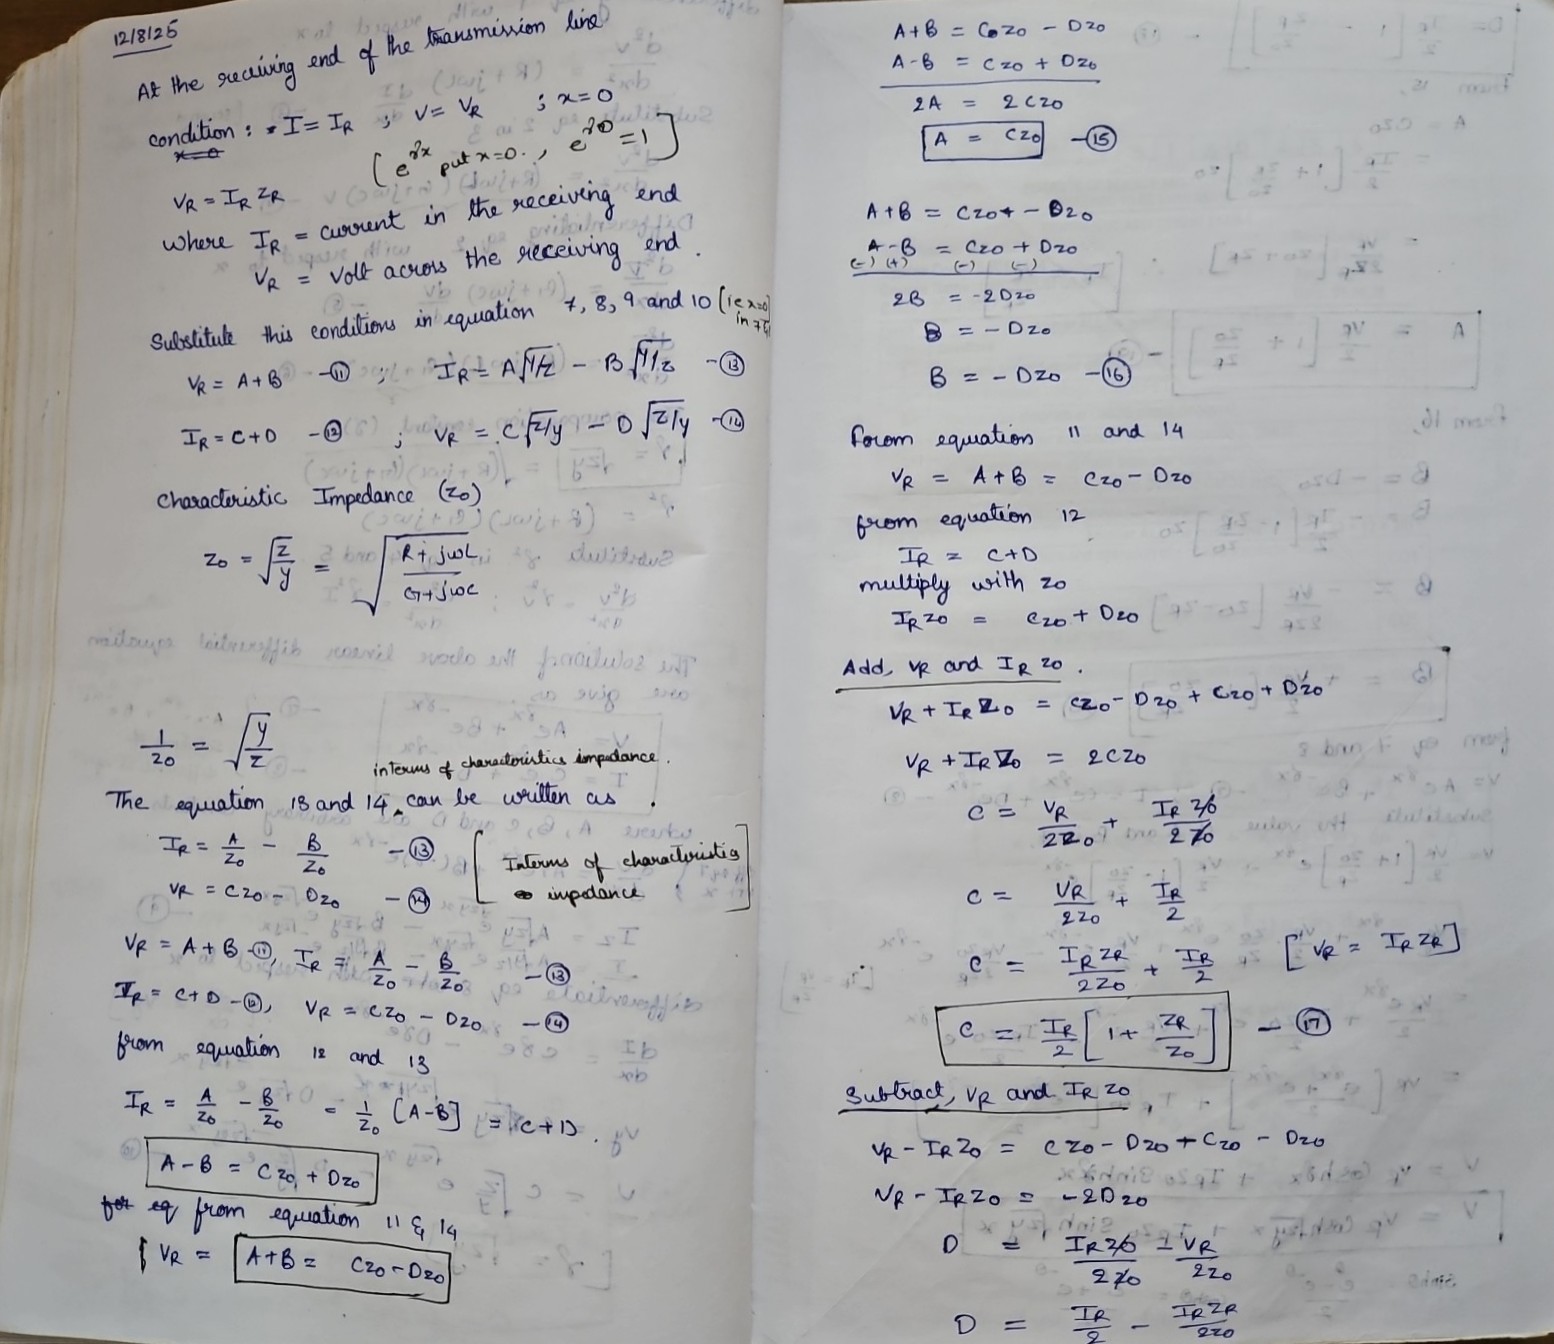 12/8/25
At the receiving end of the transmission line
condition : I = IR ; V = VR ; x=0
x=0
[e^γx put x=0. , e^γ0 = 1]
VR = IR ZR
where IR = current in the receiving end
VR = Volt across the receiving end.
Substitute this conditions in equation 7, 8, 9 and 10 [ie x=0
in 7
VR = A+B -⑪ ; IR = A√Y/Z - B√Y/Z -⑬
IR = C+D -⑫ ; VR = C√Z/Y - D√Z/Y -⑭
characteristic Impedance (Z0)
Z0 = √Z/Y = √(R+jωL)/(G+jωC)
1/Z0 = √Y/Z
interms of charectoristics impedance.
The equation 13 and 14 can be written as
IR = A/Z0 - B/Z0 -⑬
VR = CZ0 - DZ0 -⑭
[Interms of characteristics
impedance]
VR = A+B -⑪, IR = A/Z0 - B/Z0 -⑬
IR = C+D -⑫, VR = CZ0 - DZ0 -⑭
from equation 12 and 13
IR = A/Z0 - B/Z0 = 1/Z0 [A-B] = C+D.
A-B = CZ0 + DZ0
for eq from equation 11 & 14
VR = A+B = CZ0 - DZ0
A+B = CZ0 - DZ0
A-B = CZ0 + DZ0
2A = 2CZ0
A = CZ0 -⑮
A+B = CZ0 - DZ0
A-B = CZ0 + DZ0
(-) (+) (-) (-)
2B = -2DZ0
B = -DZ0
B = -DZ0 -⑯
from equation 11 and 14
VR = A+B = CZ0 - DZ0
from equation 12
IR = C+D
multiply with Z0
IR Z0 = CZ0 + DZ0
Add, VR and IR Z0.
VR + IR Z0 = CZ0 - DZ0 + CZ0 + DZ0
VR + IR Z0 = 2CZ0
C = VR/2Z0 + IR Z0/2Z0
C = VR/2Z0 + IR/2
C = IR ZR/2Z0 + IR/2 [VR = IR ZR]
C = IR/2 [1 + ZR/Z0] -⑰
Subtract, VR and IR Z0
VR - IR Z0 = CZ0 - DZ0 + CZ0 - DZ0
VR - IR Z0 = -2DZ0
D = IR Z0/2Z0 - VR/2Z0
D = IR/2 - IR ZR/2Z0